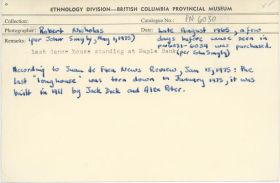 ETHNOLOGY DIVISION—BRITISH COLUMBIA PROVINCIAL MUSEUM
Collection Catalogue No.: PN 6030
Photographer: Robert Nicholas Date: Late August 1965, a few
Remarks: (per John Smyly, May 1, 1975) days before cause seen in
PN6031-6034 was purchased.
last dance house standing at Maple Bank (per John Smyly)
According to Juan de Fuca News Review, Jan 15, 1975: the
last "longhouse" was torn down in January 1975, it was
built in 1911 by Jack Dick and Alex Peter.